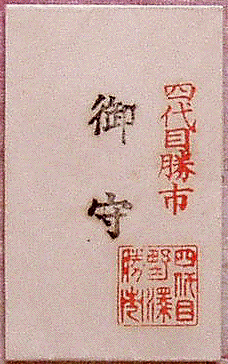 四代目勝市
御守
四代目
野澤
勝市